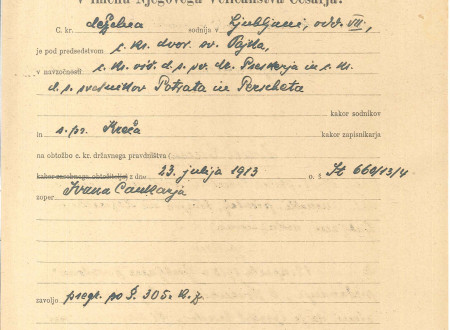 V imenu Njegovega Veličanstva Cesarja!
C. kr. deželna sodnija v Ljubljani, odd. VII.,
je pod predsedstvom c. kr. dvor. sv. Pajka,
v navzočnosti c. kr. viš. d. s. sv. dr. in c. kr.
d. s. svetnikov Potrata in Peršeta
kakor sodnikov
in s. pr. kakor zapisnikarja
na obtožbo c. kr. državnega pravdništva (
kakor zasebnega obtožitelja) z dne 23. julija 1913 o. š. St 660/13/4
zoper Ivana Cankarja
zavoljo pregr. po §. 305. k. z.